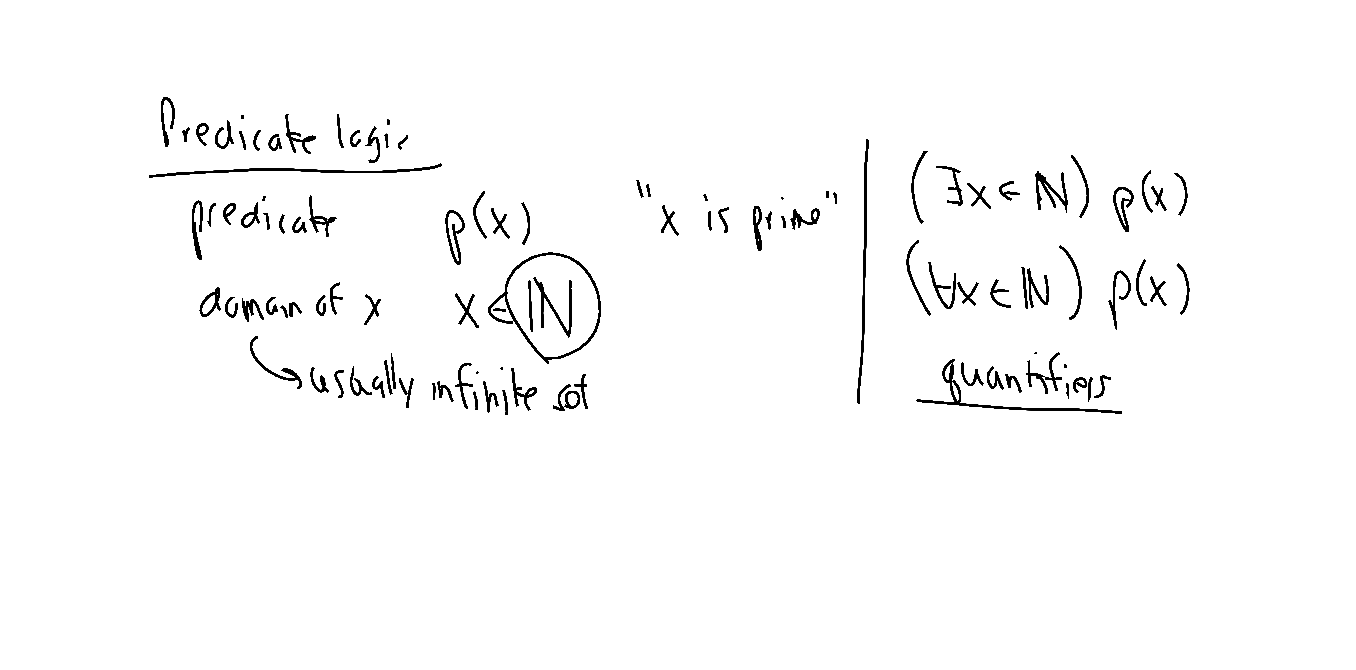 Predicate logic
predicate p(x) "x is prime"
domain of x x ∈ ℕ
usually infinite set
(∃x ∈ ℕ) p(x)
(∀x ∈ ℕ) p(x)
quantifiers